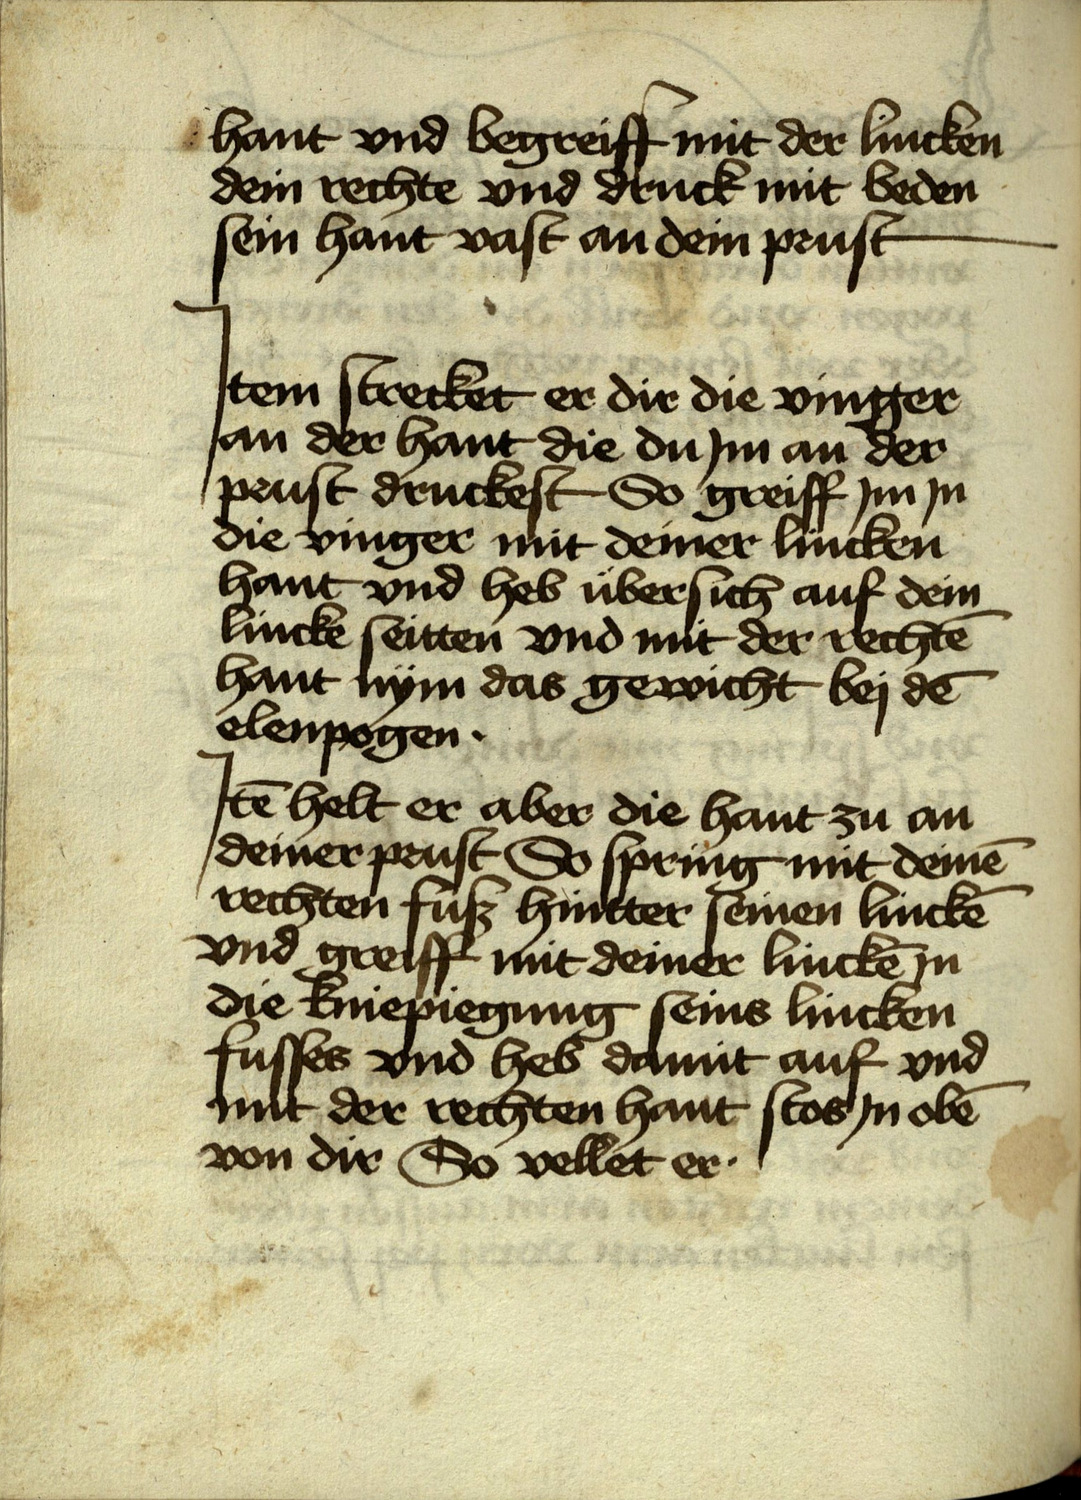 hant vnd begreiff mit der lincken
dein rechte vnd druck mit beden
sein hant vast an dein prust
Item strecket er dir die vinger
an der hant die du Im an der
prust druckest So greiff Im In
die vinger mit deiner lincken
hant vnd heb übersich auf dein
lincke seitten vnd mit der rechtē
hant nÿm das gewicht bej dē
elenpogen.
Itē helt er aber die hant zu an
deiner prust So spring mit deinē
rechten fusz hintter seinen linckē
vnd greiff mit deiner linckē In
die kniepiegung seins lincken
fusses vnd heb damit auf vnd
mit der rechten hant stos In obē
von dir So vellet er.